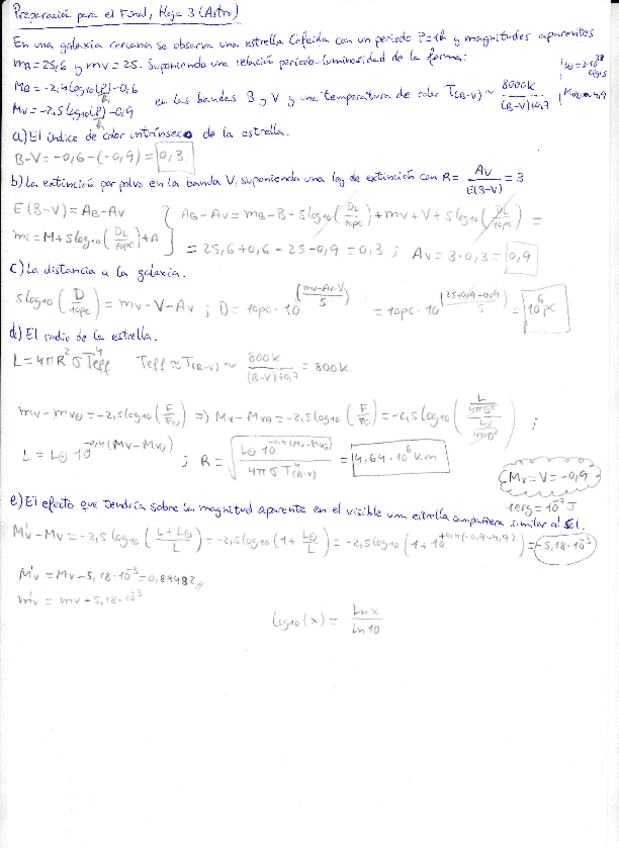 Preparación para el Final, Hoja 3 (Astro)
En una galaxia cercana se observa una estrella Cefeida con un periodo P=1h y magnitudes aparentes
mB=25,6 y mV=25. Suponiendo una relación periodo-luminosidad de la forma:
MB=-2,4log10(P/h)-0,6
MV=-2,5log10(P/h)-0,9
en las bandas B y V y una temperatura de color T(B-V) ~ 8000K/((B-V)+0,7)
a) El índice de color intrínseco de la estrella.
B-V=-0,6-(-0,9)=0,3
b) La extinción por polvo en la banda V, suponiendo una ley de extinción con R= AV/E(B-V) = 3
E(B-V)=AB-AV
m=M+5log10(DL/10pc)+A
AB-AV=mB-B-5log10(DL/10pc)-mV+V+5log10(DL/10pc)=
=25,6+0,6-25-0,9=0,3; AV=3·0,3=0,9
c) La distancia a la galaxia.
5log10(D/10pc)=mV-V-AV; D=10pc·10^((mV-AV-V)/5) =10pc·10^((25+0,9-0,9)/5)=10^6 pc
d) El radio de la estrella.
L=4πR²σTeff⁴ Teff≈T(B-V) ~ 800K/((B-V)+0,7) = 800K
mV-mV⊙=-2,5log10(F/F⊙) => MV-MV⊙=-2,5log10(F/F⊙)=-2,5log10((L/4πD²)/(L⊙/4πD²));
L=L⊙10^(-0,4(MV-MV⊙)); R=√(L⊙10^(-0,4(MV-MV⊙))/4πσT⁴(B-V))=4,64·10^6 km
MV=V=-0,9
1erg=10^-7 J
e) El efecto que tendría sobre la magnitud aparente en el visible una estrella compañera similar al Sol.
M'V-MV=-2,5log10((L+L⊙)/L)=-2,5log10(1+L⊙/L)=-2,5log10(1+10^(0,4(-0,9-4,9)))=-5,18·10^-3
M'V=MV-5,18·10^-3=0,89482
m'V=mV-5,18·10^-3
log10(x)= Lnx/Ln10